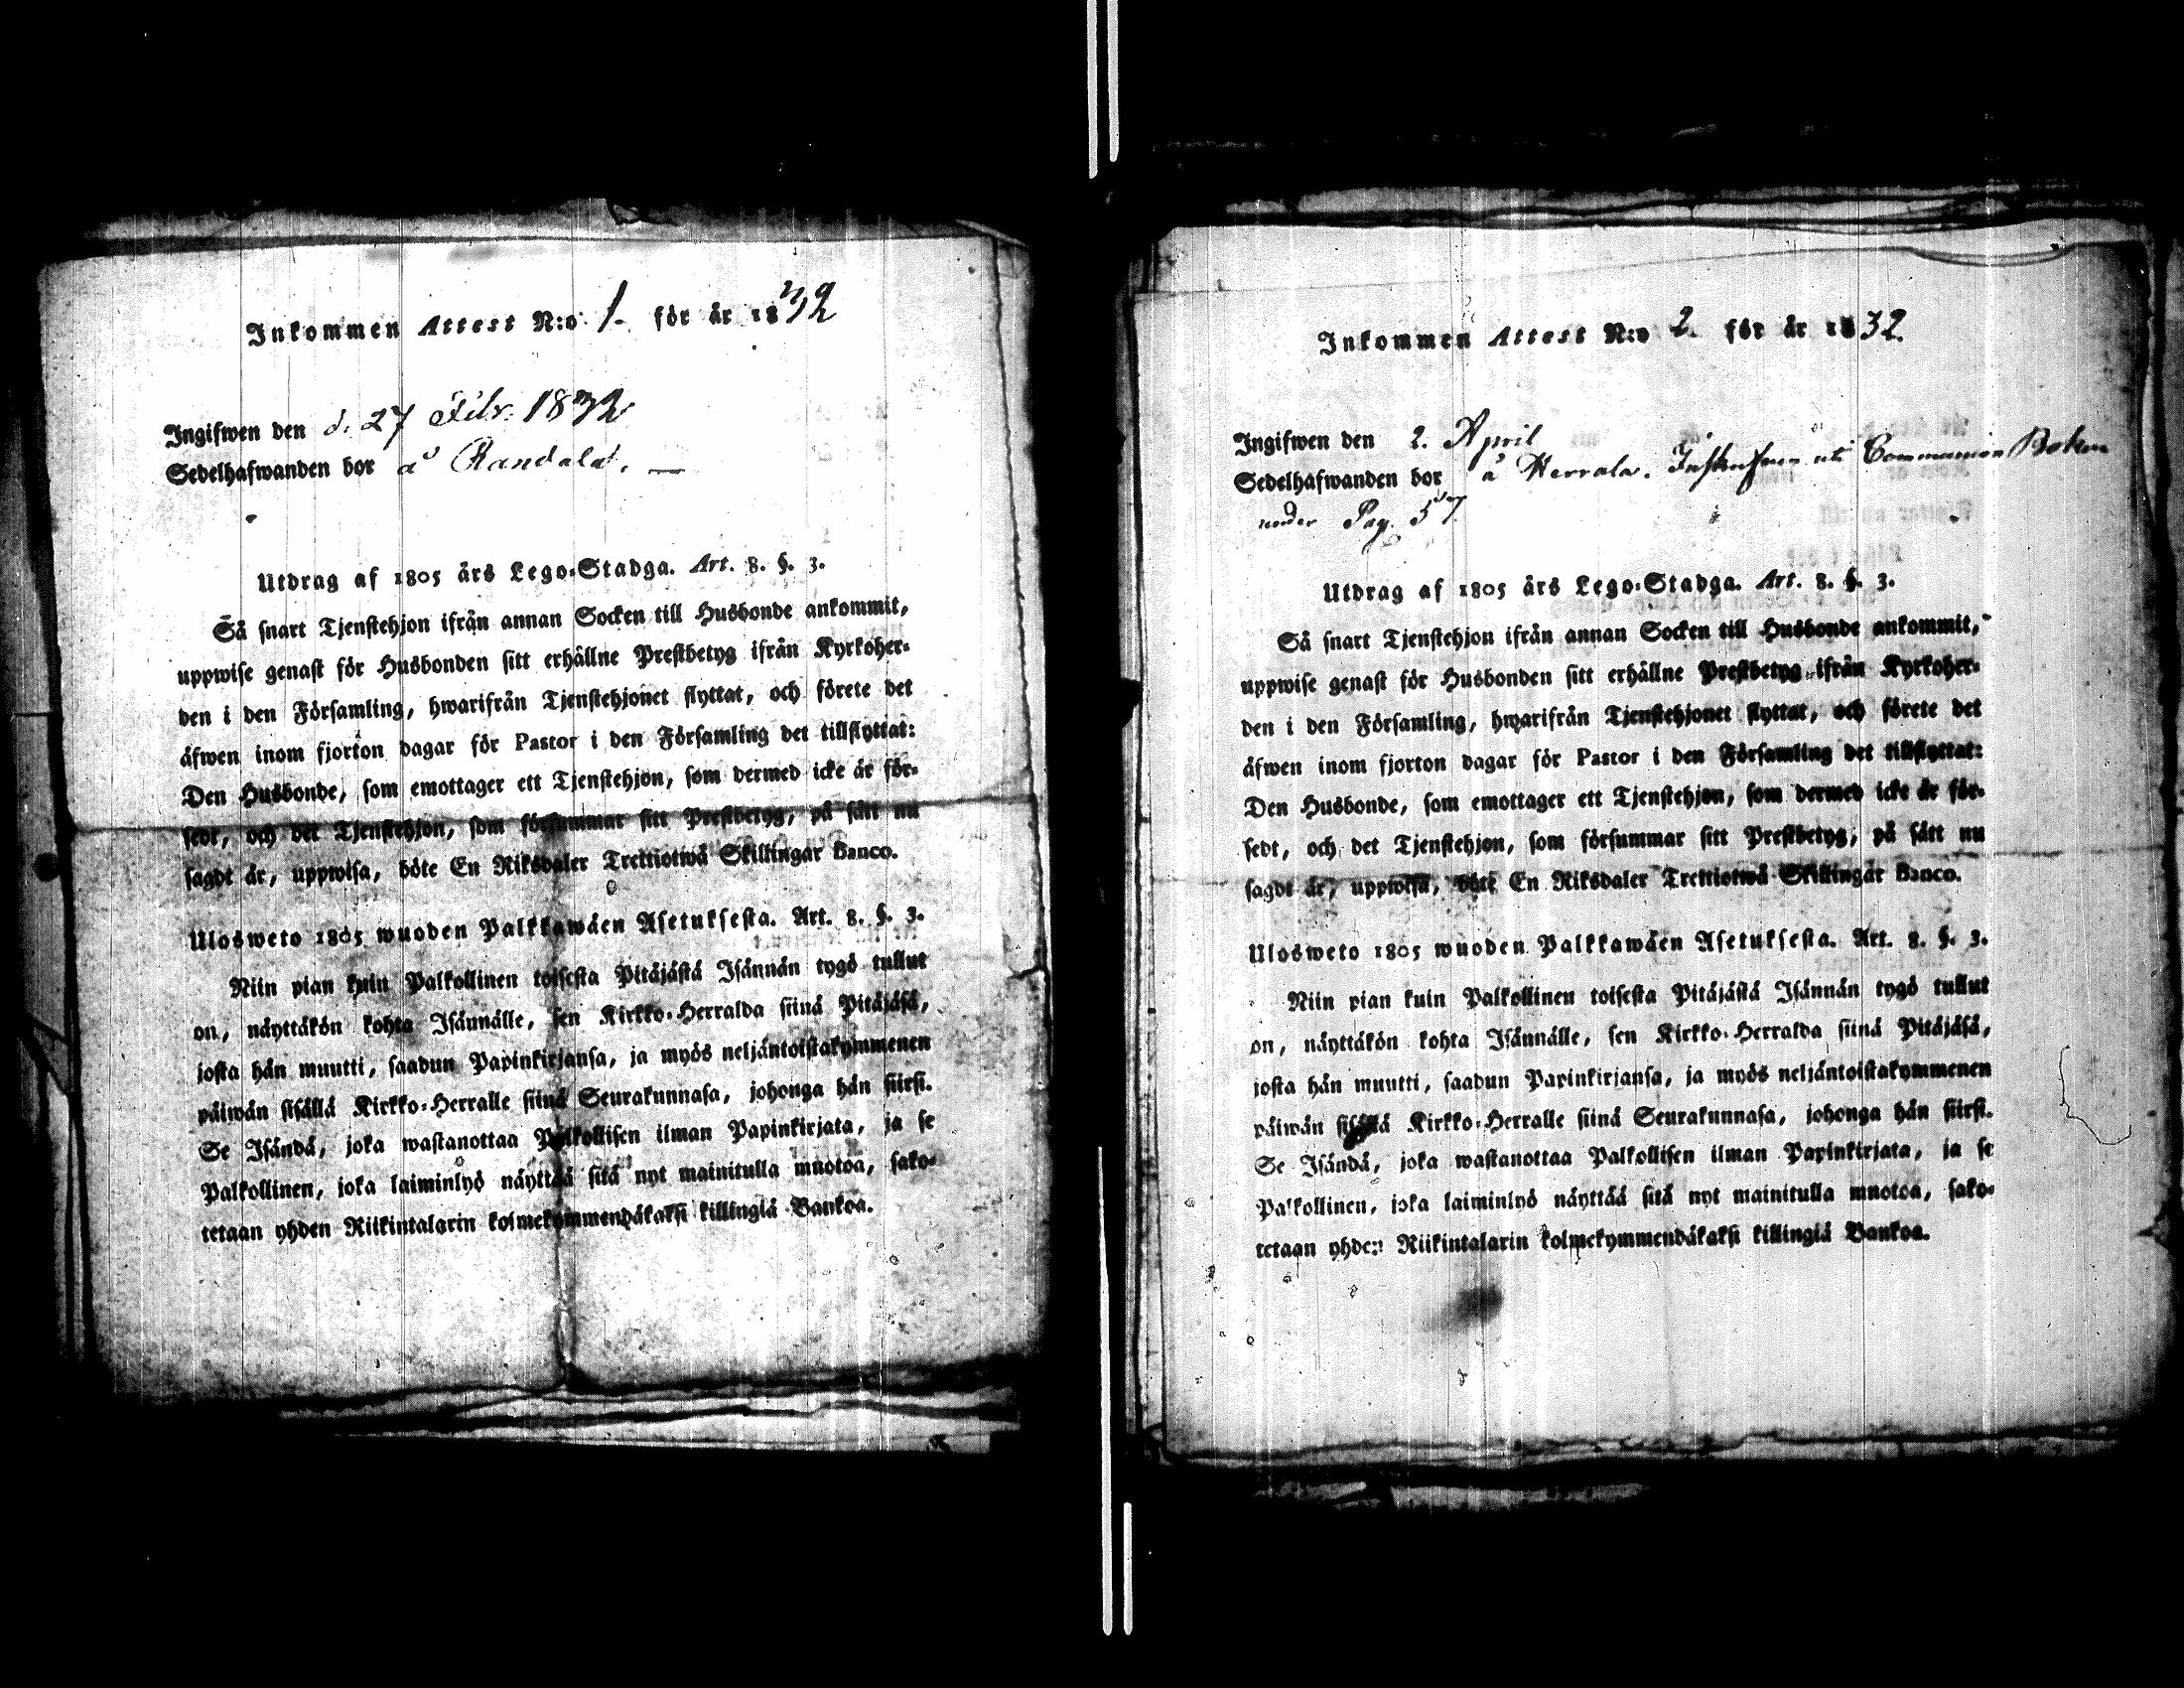 Inkommen Attest N:o 1. för år 1832
Ingifwen den d. 27 Febr. 1832
Sedelhafwanden bor å Randala. —
Utdrag af 1805 års Lego-Stadga. Art. 8. §. 3.
Så snart Tjenstehjon ifrån annan Socken till Husbonde ankommit,
uppwise genast för Husbonden sitt erhållne Prestbetyg ifrån Kyrkoher-
den i den Församling, hwarifrån Tjenstehjonet flyttat, och förete det
äfwen inom fjorton dagar för Pastor i den Församling det tillflyttat:
Den Husbonde, som emottager ett Tjenstehjon, som dermed icke är för-
sedt, och det Tjenstehjon, som försummar sitt Prestbetyg, på sätt nu
sagdt är, uppwisa, böte En Riksdaler Trettiotwå Skillingar Banco.
Ulosweto 1805 wuoden Palkkawäen Asetuksesta. Art. 8. §. 3.
Niin pian kuin Palkollinen toisesta Pitäjästä Isännän tygö tullut
on, näyttäkön kohta Isännälle, sen Kirkko-Herralda siinä Pitäjäsä,
josta hän muutti, saadun Papinkirjansa, ja myös neljäntoistakymmenen
päiwän sisällä Kirkko-Herralle siinä Seurakunnasa, johonga hän siirsi.
Se Isändä, joka wastanottaa Palkollisen ilman Papinkirjata, ja se
Palkollinen, joka laiminlyö näyttää sitä nyt mainitulla muotoa, sako-
tetaan yhden Riikintalarin kolmekymmendäkaksi killingiä Bankoa.
Inkommen Attest N:o 2. för år 1832.
Ingifwen den 2. April
Sedelhafwanden bor å Herrala. Inskrifven uti Communion Boken
under Pag. 57.
Utdrag af 1805 års Lego-Stadga. Art. 8. §. 3.
Så snart Tjenstehjon ifrån annan Socken till Husbonde ankommit,
uppwise genast för Husbonden sitt erhållne Prestbetyg ifrån Kyrkoher-
den i den Församling, hwarifrån Tjenstehjonet flyttat, och förete det
äfwen inom fjorton dagar för Pastor i den Församling det tillflyttat:
Den Husbonde, som emottager ett Tjenstehjon, som dermed icke är för-
sedt, och det Tjenstehjon, som försummar sitt Prestbetyg, på sätt nu
sagdt är, uppwisa, böte En Riksdaler Trettiotwå Skillingar Banco.
Ulosweto 1805 wuoden Palkkawäen Asetuksesta. Art. 8. §. 3.
Niin pian kuin Palkollinen toisesta Pitäjästä Isännän tygö tullut
on, näyttäkön kohta Isännälle, sen Kirkko-Herralda siinä Pitäjäsä,
josta hän muutti, saadun Papinkirjansa, ja myös neljäntoistakymmenen
päiwän sisällä Kirkko-Herralle siinä Seurakunnasa, johonga hän siirsi.
Se Isändä, joka wastanottaa Palkollisen ilman Papinkirjata, ja se
Palkollinen, joka laiminlyö näyttää sitä nyt mainitulla muotoa, sako-
tetaan yhden Riikintalarin kolmekymmendäkaksi killingiä Bankoa.